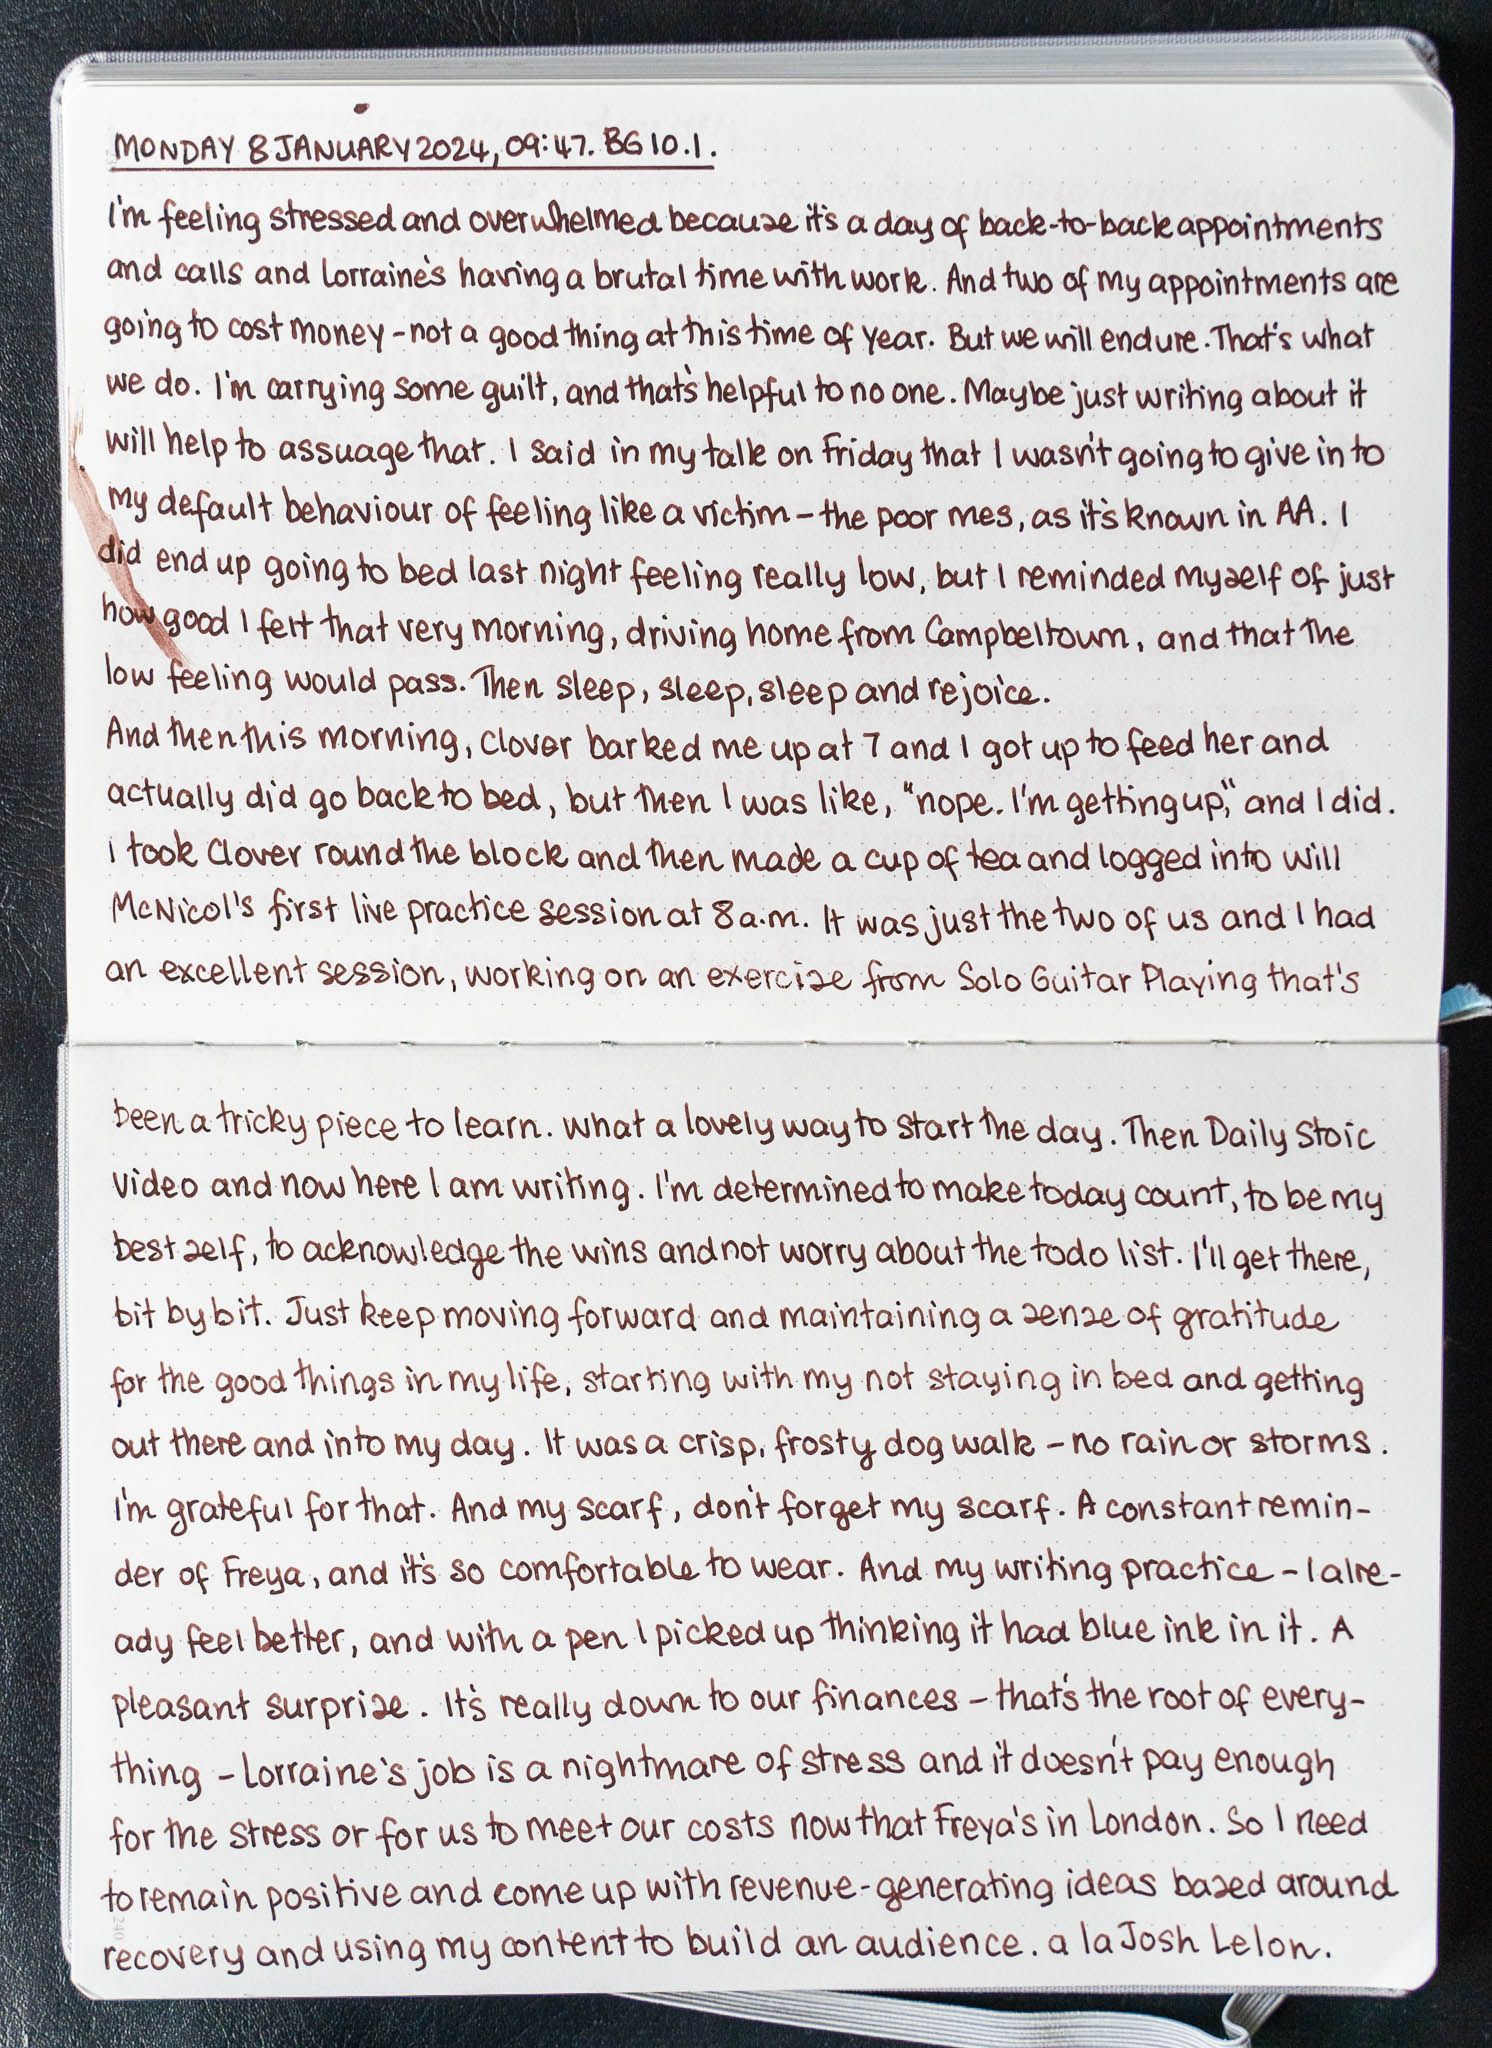 MONDAY 8 JANUARY 2024, 09:47. BG 10.1.
I'm feeling stressed and overwhelmed because it's a day of back-to-back appointments
and calls and Lorraine's having a brutal time with work. And two of my appointments are
going to cost money – not a good thing at this time of year. But we will endure. That's what
we do. I'm carrying some guilt, and that's helpful to no one. Maybe just writing about it
will help to assuage that. I said in my talk on Friday that I wasn't going to give in to
my default behaviour of feeling like a victim – the poor mes, as it's known in AA. I
did end up going to bed last night feeling really low, but I reminded myself of just
how good I felt that very morning, driving home from Campbeltown, and that the
low feeling would pass. Then sleep, sleep, sleep and rejoice.
And then this morning, Clover barked me up at 7 and I got up to feed her and
actually did go back to bed, but then I was like, "nope. I'm getting up," and I did.
I took Clover round the block and then made a cup of tea and logged into Will
McNicol's first live practice session at 8 a.m. It was just the two of us and I had
an excellent session, working on an exercise from Solo Guitar Playing that's
been a tricky piece to learn. What a lovely way to start the day. Then Daily Stoic
video and now here I am writing. I'm determined to make today count, to be my
best self, to acknowledge the wins and not worry about the todo list. I'll get there,
bit by bit. Just keep moving forward and maintaining a sense of gratitude
for the good things in my life, starting with my not staying in bed and getting
out there and into my day. It was a crisp, frosty dog walk – no rain or storms.
I'm grateful for that. And my scarf, don't forget my scarf. A constant remin-
der of Freya, and it's so comfortable to wear. And my writing practice – I alre-
ady feel better, and with a pen I picked up thinking it had blue ink in it. A
pleasant surprise. It's really down to our finances – that's the root of every-
thing – Lorraine's job is a nightmare of stress and it doesn't pay enough
for the stress or for us to meet our costs now that Freya's in London. So I need
to remain positive and come up with revenue-generating ideas based around
recovery and using my content to build an audience. a la Josh Lelon.
240